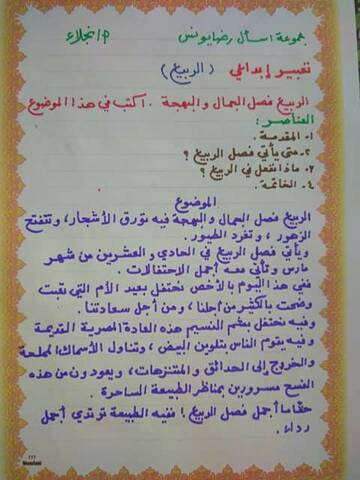 مجموعة اسأل رضا يونس
م/ نجلاء
تعبير إبداعي (الربيع)
الربيع فصل الجمال والبهجة. اكتب في هذا الموضوع
العناصر:
١- المقدمة.
٢- متى يأتي فصل الربيع؟
٣- ماذا نفعل في الربيع؟
٤- الخاتمة.
الموضوع
الربيع فصل الجمال والبهجة فيه تورق الأشجار، وتتفتح
الزهور، وتغرد الطيور.
ويأتي فصل الربيع في الحادي والعشرين من شهر
مارس وتأتي معه أجمل الاحتفالات.
ففي هذا اليوم بالأخص نحتفل بعيد الأم التي تعبت
وضحت بالكثير من أجلنا، ومن أجل سعادتنا.
وفيه نحتفل بشم النسيم هذه العادة المصرية القديمة
وفيه يقوم الناس بتلوين البيض، وتناول الأسماك المملحة
والخروج إلى الحدائق والمتنزهات، ويعودون من هذه
الفسح مسرورين بمناظر الطبيعة الساحرة.
حقًا ما أجمل فصل الربيع! ففيه الطبيعة ترتدي أجمل
رداء.